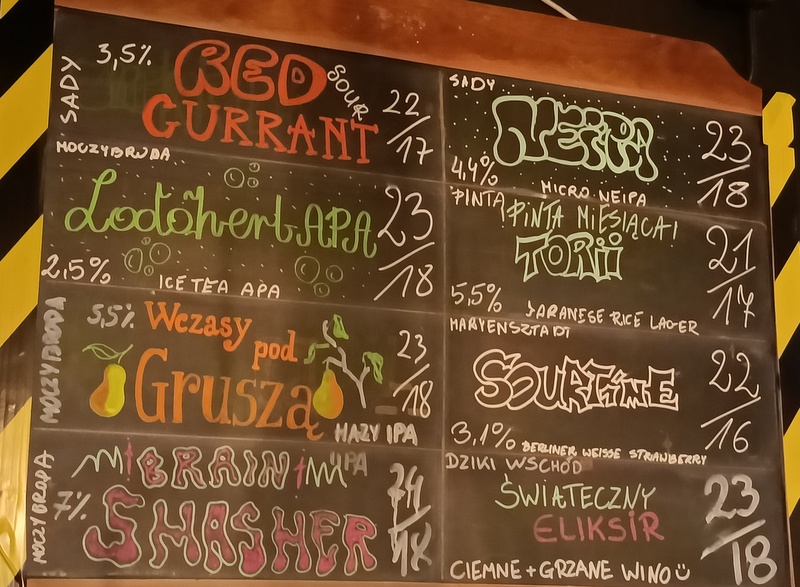 SADY
3,5%
RED
SOUR
CURRANT
22/17
MOCZYBRODA
LodoherbAPA
2,5%
ICE TEA APA
23/18
MOCZYBRODA
5,5%
Wczasy
pod
Gruszą
HAZY IPA
23/18
MOCZYBRODA
7%
BRAIN
SMASHER
SADY
NEIPA
4,4%
MICRO NEIPA
23/18
PINTA
PINTA MIESIĄCA!
TORII
5,5%
JAPANESE RICE LAGER
21/17
MARYENSZTADT
SOURTIME
3,1%
BERLINER WEISSE STRAWBERRY
22/16
DZIKI WSCHÓD
ŚWIĄTECZNY
ELIKSIR
CIEMNE + GRZANE WINO
23/18